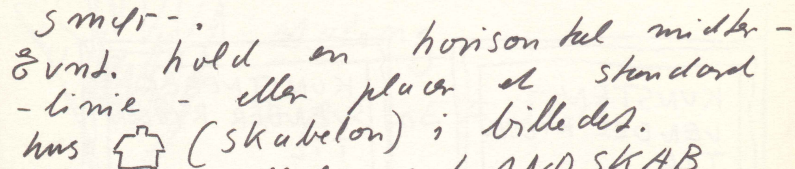 Evnt. hold en horisontal midter-
-linie - eller placer et standard
hus (skabelon) i billedet.
LANDSKAB